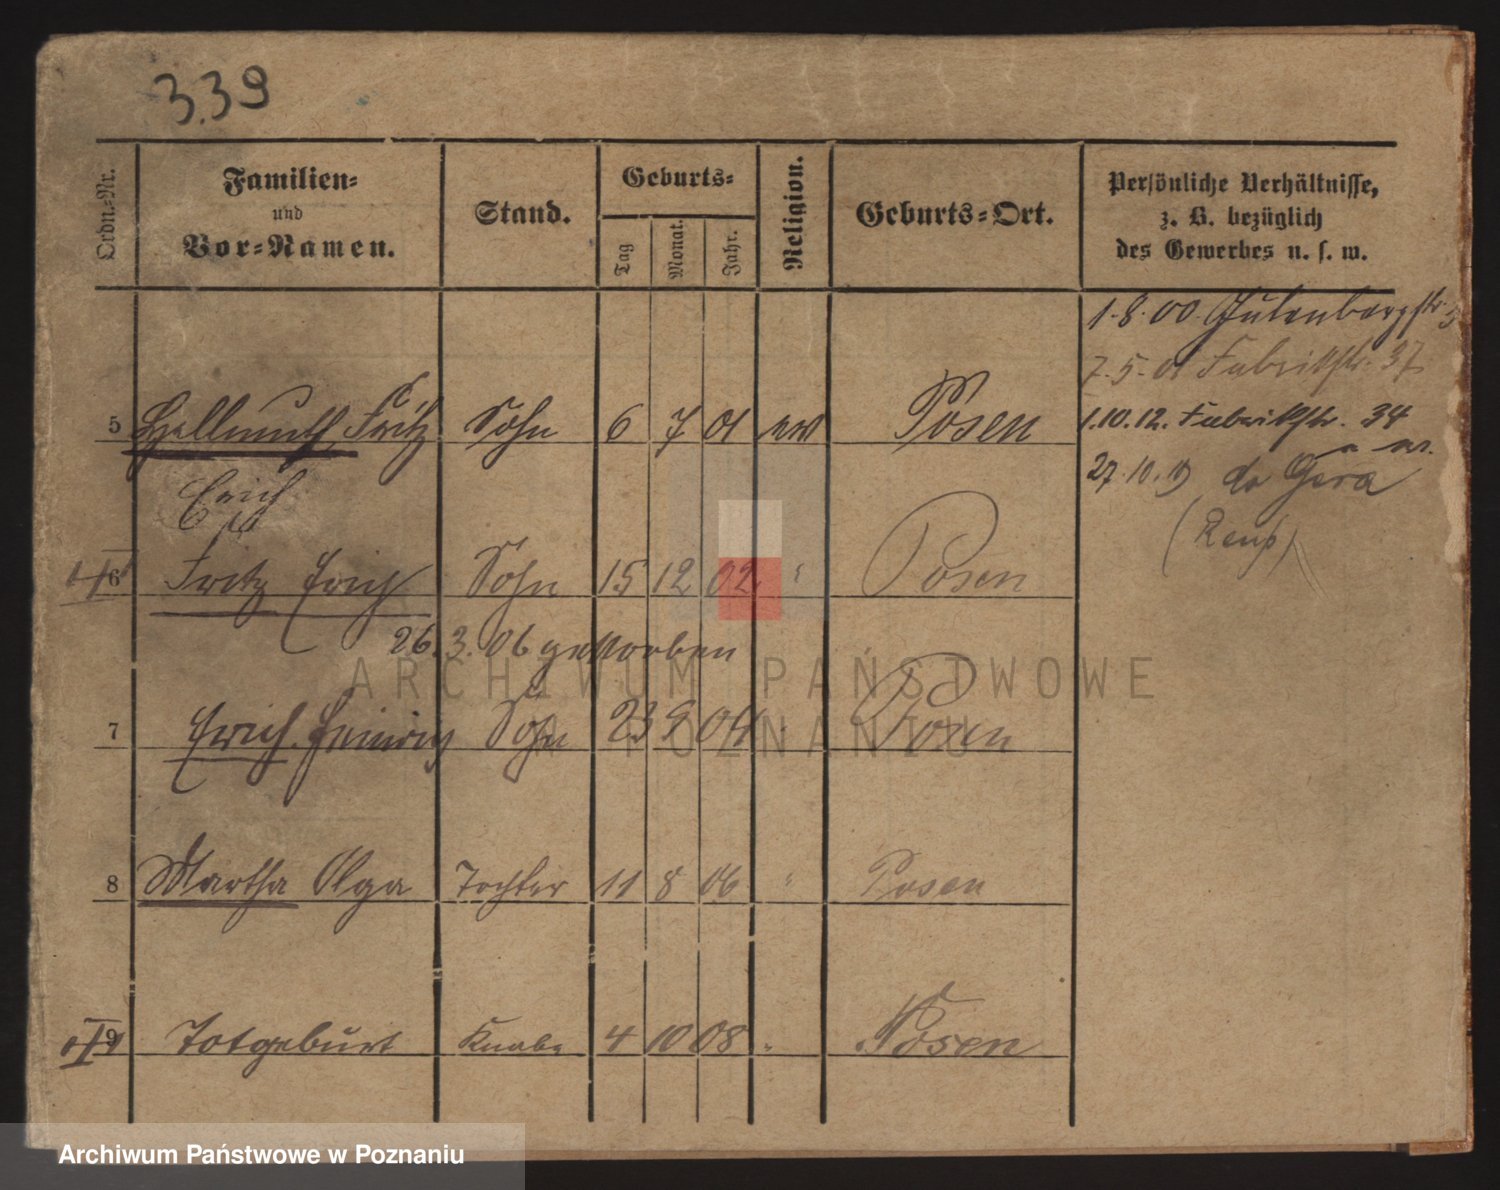 3.39
Ordn.-Nr.
Familien-
und
Vor-Namen.
Stand.
Geburts-
Tag
Monat.
Jahr.
Religion.
Geburts-Ort.
Persönliche Verhältnisse,
z. B. bezüglich
des Gewerbes u. s. w.
1.8.00. Gutenbergstr. 5
7.5.01 Fabrikstr. 37
5 Hellmuth Fritz Sohn 6 7 01 ev Posen
1.10.12. Fabrikstr. 34
27.10.19 do Gera
Erich
(Reuß)
6 Fritz Erich Sohn 15 12 02 " Posen
26.3.06 gestorben
7 Erich Heinrich Sohn 23 9 04 " Posen
8 Martha Olga Tochter 11 8 06 " Posen
9 Totgeburt Knabe 4 10 08 " Posen
ARCHIWUM PAŃSTWOWE
W POZNANIU
Archiwum Państwowe w Poznaniu